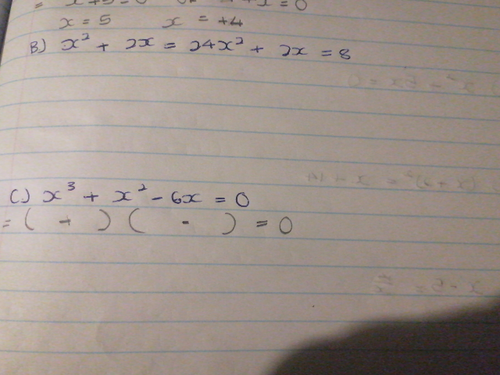 x = 5 x = +4
B) x² + 2x = 24x² + 2x = 8
C) x³ + x² - 6x = 0
= ( + ) ( - ) = 0